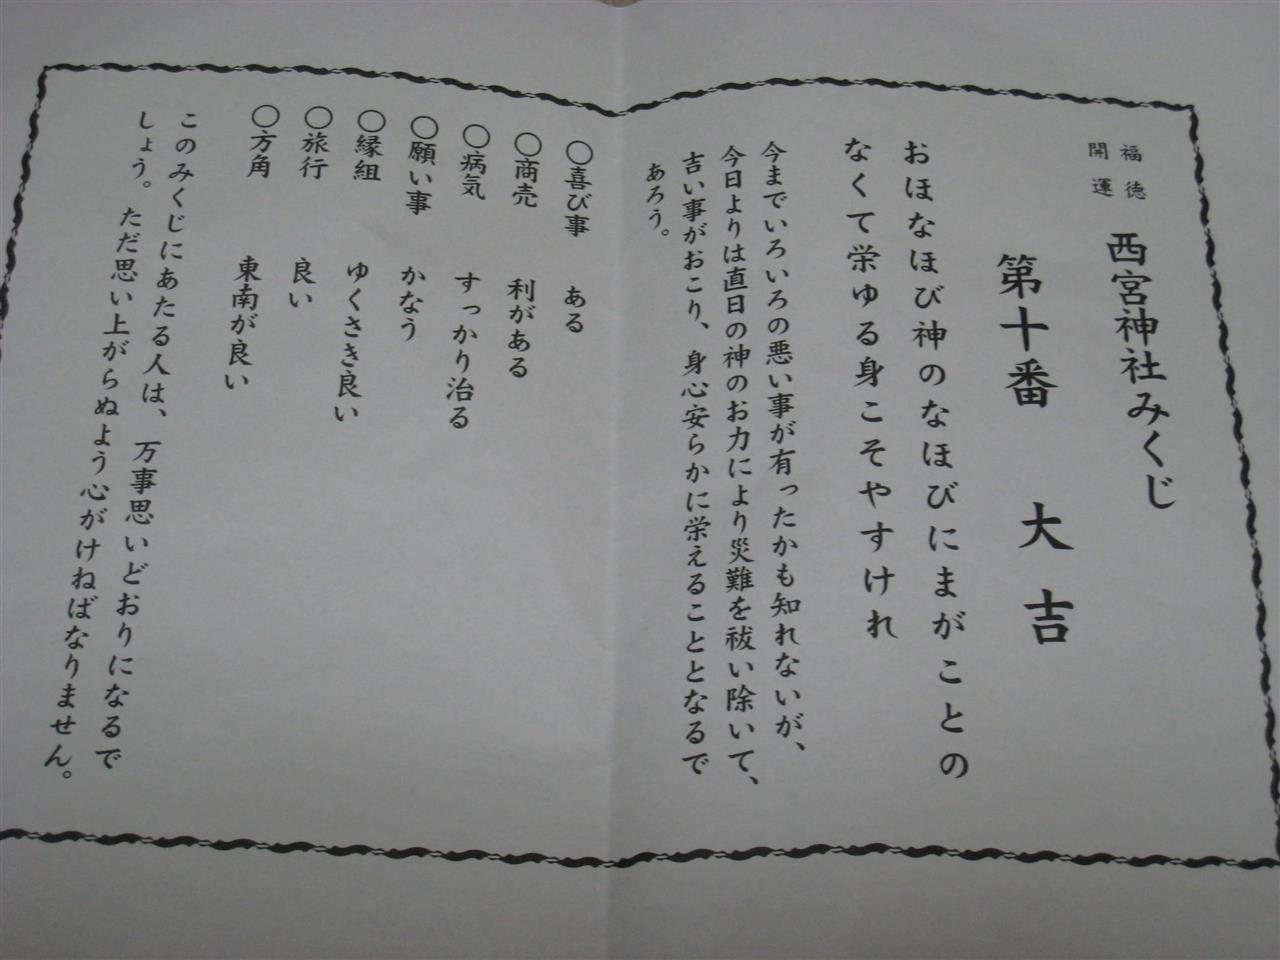 福徳
開運
西宮神社みくじ
第十番 大吉
おほなほび神のなほびにまがことの
なくて栄ゆる身こそやすけれ
今までいろいろの悪い事が有ったかも知れないが、
今日よりは直日の神のお力により災難を祓い除いて、
吉い事がおこり、身心安らかに栄えることとなるで
あろう。
○喜び事 ある
○商売 利がある
○病気 すっかり治る
○願い事 かなう
○縁組 ゆくさき良い
○旅行 良い
○方角 東南が良い
このみくじにあたる人は、万事思いどおりになるで
しょう。ただ思い上がらぬよう心がけねばなりません。